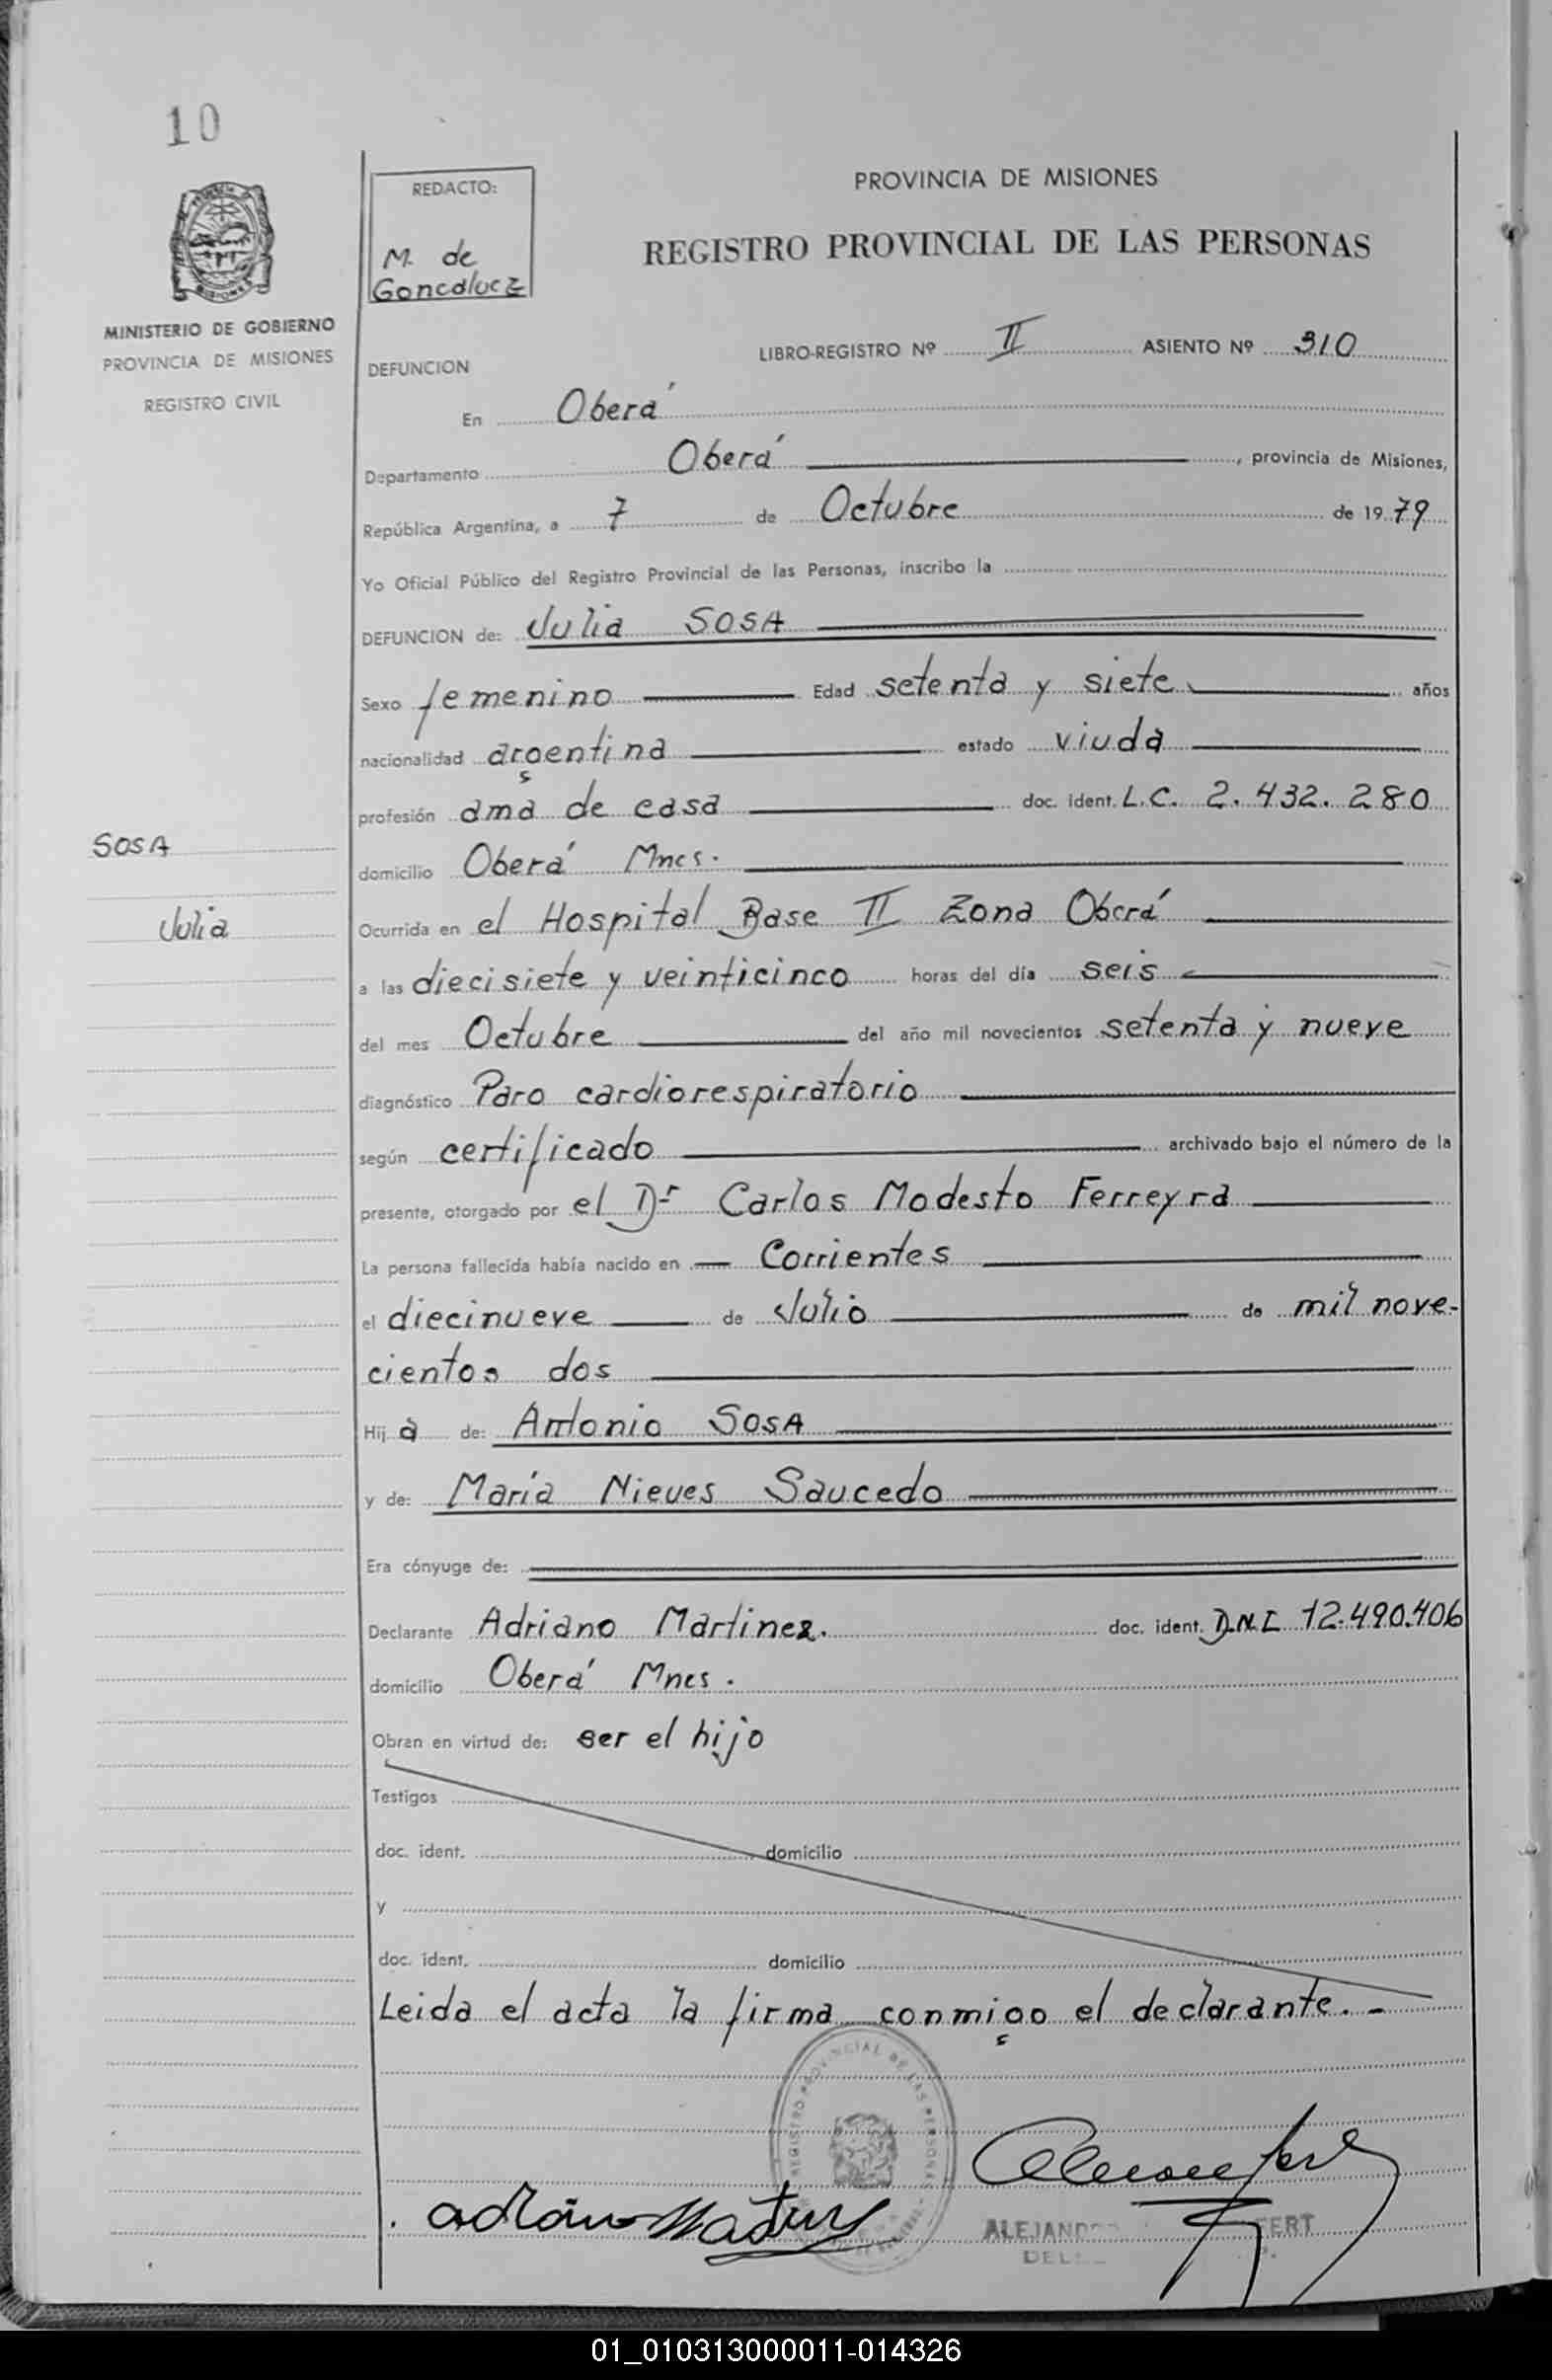 10
REDACTO:
M. de
Goncalvez
MINISTERIO DE GOBIERNO
PROVINCIA DE MISIONES
REGISTRO CIVIL
PROVINCIA DE MISIONES
REGISTRO PROVINCIAL DE LAS PERSONAS
LIBRO-REGISTRO Nº II ASIENTO Nº 310
DEFUNCION
En Oberá
Departamento Oberá, provincia de Misiones,
República Argentina, a 7 de Octubre de 1979
Yo Oficial Público del Registro Provincial de las Personas, inscribo la
DEFUNCION de: Julia SOSA
Sexo femenino Edad setenta y siete años
nacionalidad argentina estado viuda
profesión ama de casa doc. ident. L.C. 2.432.280
SOSA
domicilio Oberá Mnes.
Julia
Ocurrida en el Hospital Base II Zona Oberá
a las diecisiete y veinticinco horas del día seis
del mes Octubre del año mil novecientos setenta y nueve
diagnóstico Paro cardiorespiratorio
según certificado archivado bajo el número de la
presente, otorgado por el Dr Carlos Modesto Ferreyra
La persona fallecida había nacido en Corrientes
el diecinueve de Julio de mil nove-
cientos dos
Hija de: Antonio SOSA
y de: María Nieves Saucedo
Era cónyuge de:
Declarante Adriano Martinez. doc. ident. D.N.I. 12.490.406
domicilio Oberá Mnes.
Obran en virtud de: ser el hijo
Testigos
doc. ident. domicilio
y
doc. ident. domicilio
Leida el acta la firma conmigo el declarante.-
REGISTRO PROVINCIAL DE LAS PERSONAS
01_010313000011-014326